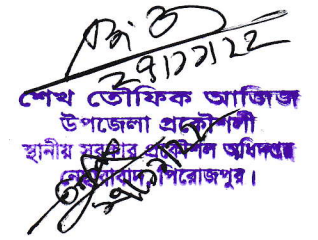 ২৭/১১/২২
শেখ তৌফিক আজিজ
উপজেলা প্রকৌশলী
স্থানীয় সরকার প্রকৌশল অধিদপ্তর
নেছারাবাদ, পিরোজপুর।